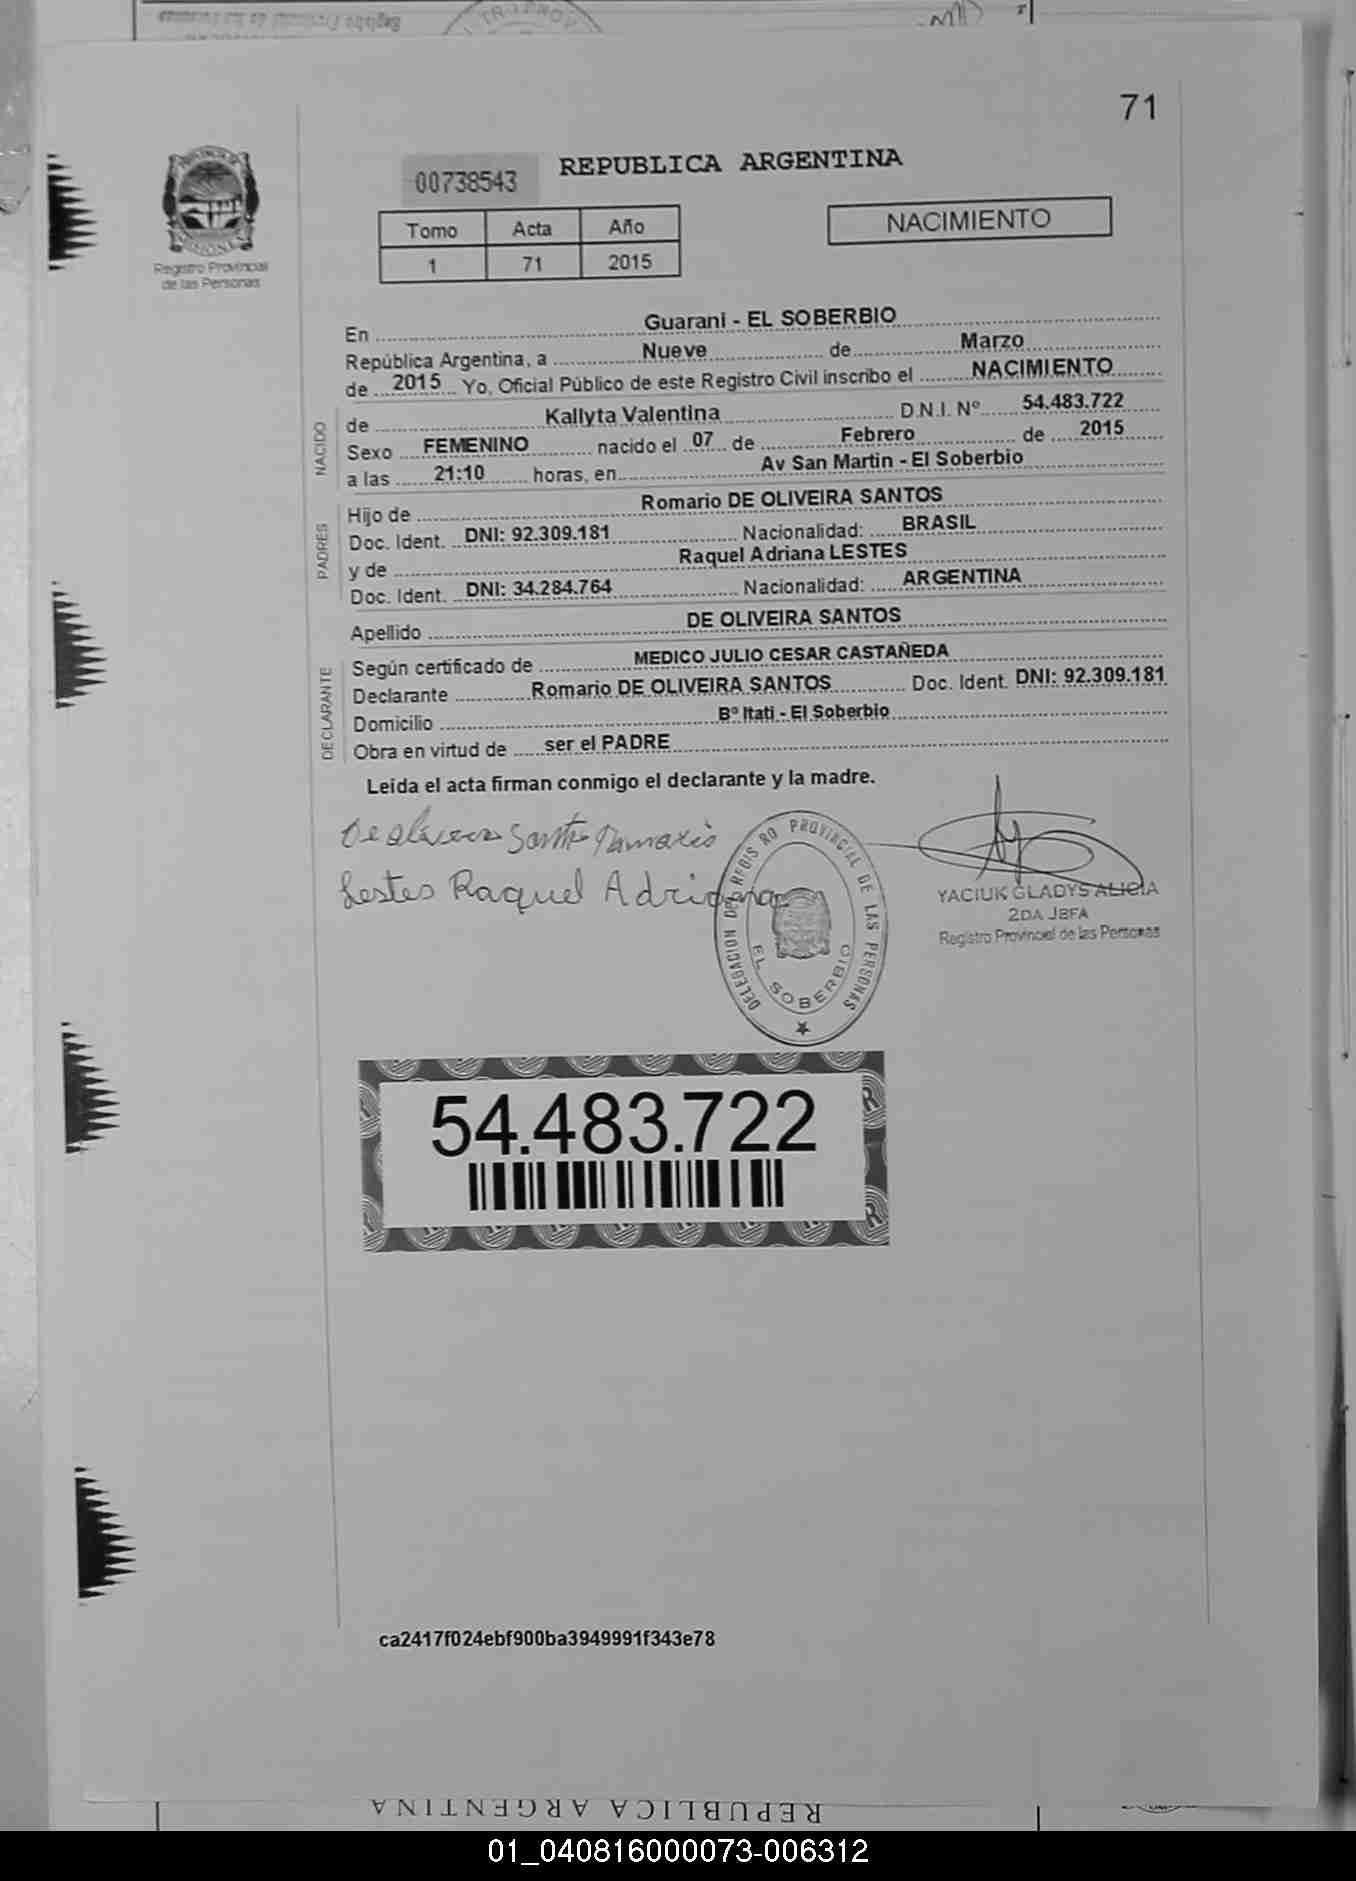 71
REPUBLICA ARGENTINA
00738543
Tomo Acta Año
1 71 2015
NACIMIENTO
Registro Provincial
de las Personas
En Guarani - EL SOBERBIO
República Argentina, a Nueve de Marzo
de 2015 Yo, Oficial Público de este Registro Civil inscribo el NACIMIENTO
NACIDO
de Kallyta Valentina D.N.I. Nº 54.483.722
Sexo FEMENINO nacido el 07 de Febrero de 2015
a las 21:10 horas, en Av San Martin - El Soberbio
PADRES
Hijo de Romario DE OLIVEIRA SANTOS
Doc. Ident. DNI: 92.309.181 Nacionalidad: BRASIL
y de Raquel Adriana LESTES
Doc. Ident. DNI: 34.284.764 Nacionalidad: ARGENTINA
Apellido DE OLIVEIRA SANTOS
DECLARANTE
Según certificado de MEDICO JULIO CESAR CASTAÑEDA
Declarante Romario DE OLIVEIRA SANTOS Doc. Ident. DNI: 92.309.181
Domicilio Bº Itati - El Soberbio
Obra en virtud de ser el PADRE
Leida el acta firman conmigo el declarante y la madre.
Lestes Raquel Adriana
DELEGACION DEL REGISTRO PROVINCIAL DE LAS PERSONAS
EL SOBERBIO
YACIUK GLADYS ALICIA
2DA JEFA
Registro Provincial de las Personas
54.483.722
ca2417f024ebf900ba3949991f343e78
REPUBLICA ARGENTINA
01_040816000073-006312